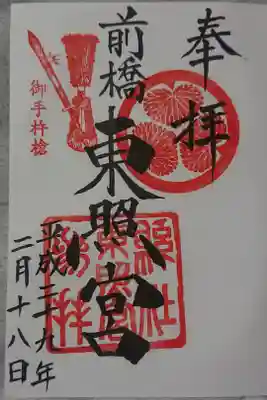 奉拝
前橋東照宮
御手杵槍
平成二十九年
二月十八日